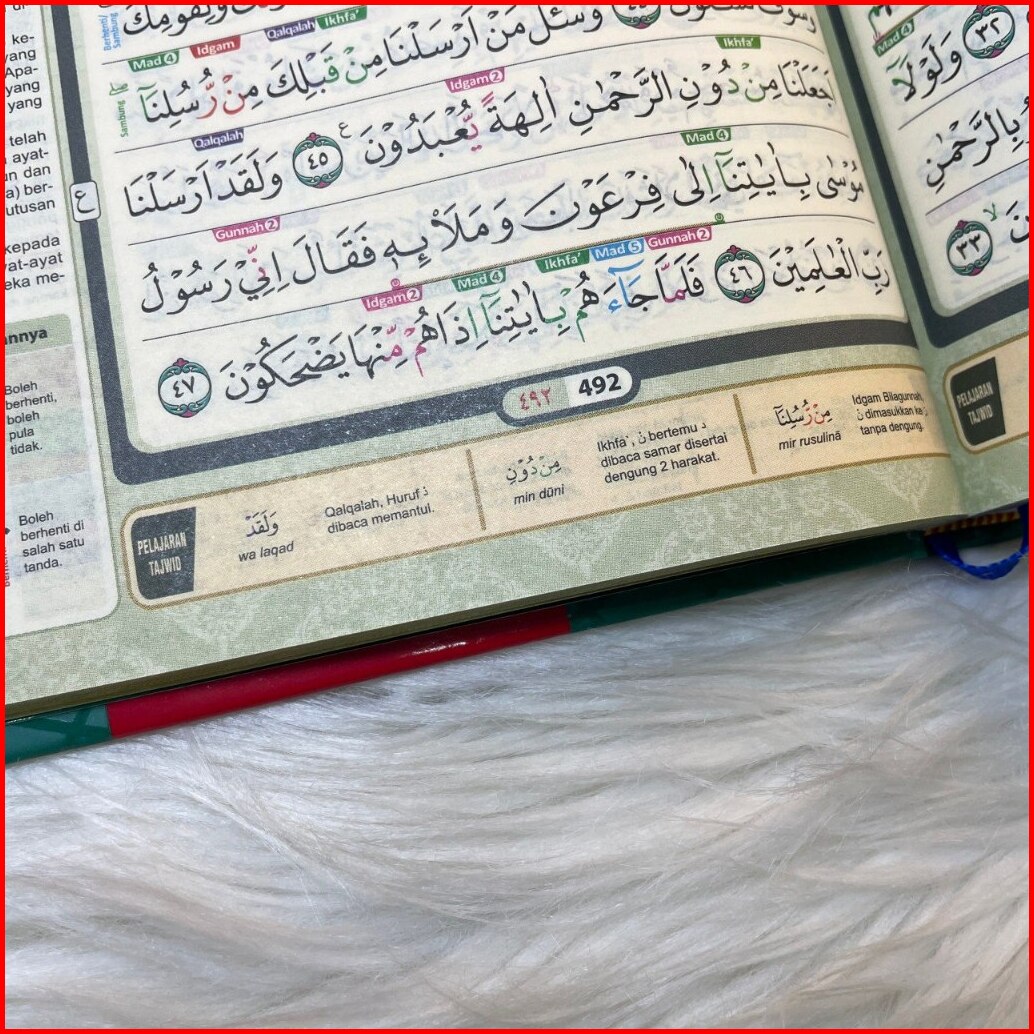 Berhenti/
Sambung
Qalqalah Ikhfa’
وَسْـَٔلْ مَنْ اَرْسَلْنَا مِنْ قَبْلِكَ مِنْ رُّسُلِنَآ
Mad 4 Idgam
Sambung
Ikhfa’
Idgam 2
جَعَلْنَا مِنْ دُوْنِ الرَّحْمٰنِ اٰلِهَةً يُّعْبَدُوْنَ ࣖ ٤٥ وَلَقَدْ اَرْسَلْنَا
Qalqalah
Mad 4
ع
مُوْسٰى بِاٰيٰتِنَآ اِلٰى فِرْعَوْنَ وَمَلَا۟ىِٕهٖ فَقَالَ اِنِّيْ رَسُوْلُ
Gunnah 2
Ikhfa’ Mad 5 Gunnah 2
Idgam 2 Mad 4
رَبِّ الْعٰلَمِيْنَ ٤٦ فَلَمَّا جَاۤءَهُمْ بِاٰيٰتِنَآ اِذَا هُمْ مِّنْهَا يَضْحَكُوْنَ ٤٧
٤٩٢ 492
PELAJARAN
TAJWID
وَلَقَدْ
wa laqad
Qalqalah, Huruf د
dibaca memantul.
مِنْ دُوْنِ
min dūni
Ikhfa’, ن bertemu د
dibaca samar disertai
dengung 2 harakat.
مِنْ رُّسُلِنَآ
mir rusulinā
Idgam Bilagunnah,
ن dimasukkan ke ر
tanpa dengung.
ke-
yang
Apa-
yang
yang
telah
ayat-
dan
ber-
utusan
kepada
yat-ayat
eka me-
annya
Boleh
berhenti,
boleh
pula
tidak.
Boleh
berhenti di
salah satu
tanda.
٣٢
Mad 4
وَلَوْلَآ
بِالرَّحْمٰنِ
٣٣
PELAJARAN
TAJWID